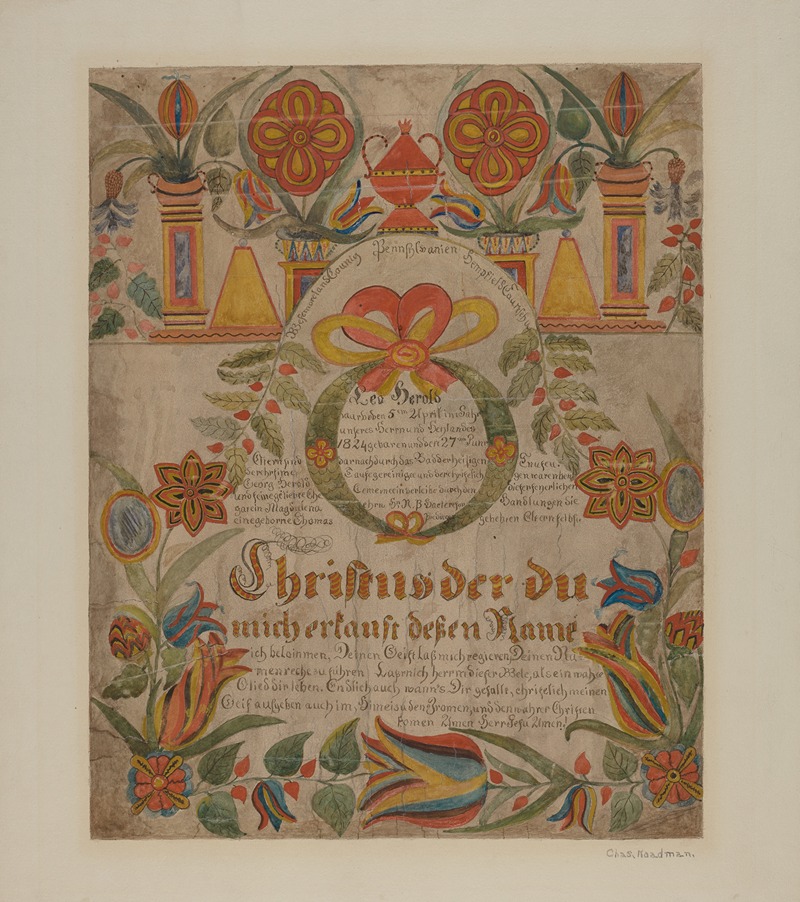 Pennsylvanien
Leo Herold
den 5ten April im Jahr
unseres Herrn und Heylandes
1824 gebaren und den 27ten
darnach durch das Bad der heiligen
und der christlich
durch den
Eltern sind
der ehrsame
Georg Herold
und seine geliebte Ehe
garein Magdalena
eine geborne Thomas
Taufeu-
gen waren bey
dieser feyerlicher
Handlungen die
Eltern selbst
Christus der du
mich erkauft deßen Name
ich bekommen, Deinen Geist laß mich regieren, Deinen Na-
men recht zu führen Laß mich herr in dieser Wele, als ein wahr
Glied dir leben. Endlich auch wann's Dir gefällt, christlich meinen
Geist aufgeben auch im, Himeis u den Fromen, und den wahrer Christen
komen Amen Herr Jesu Amen!
Chas. Roadman.